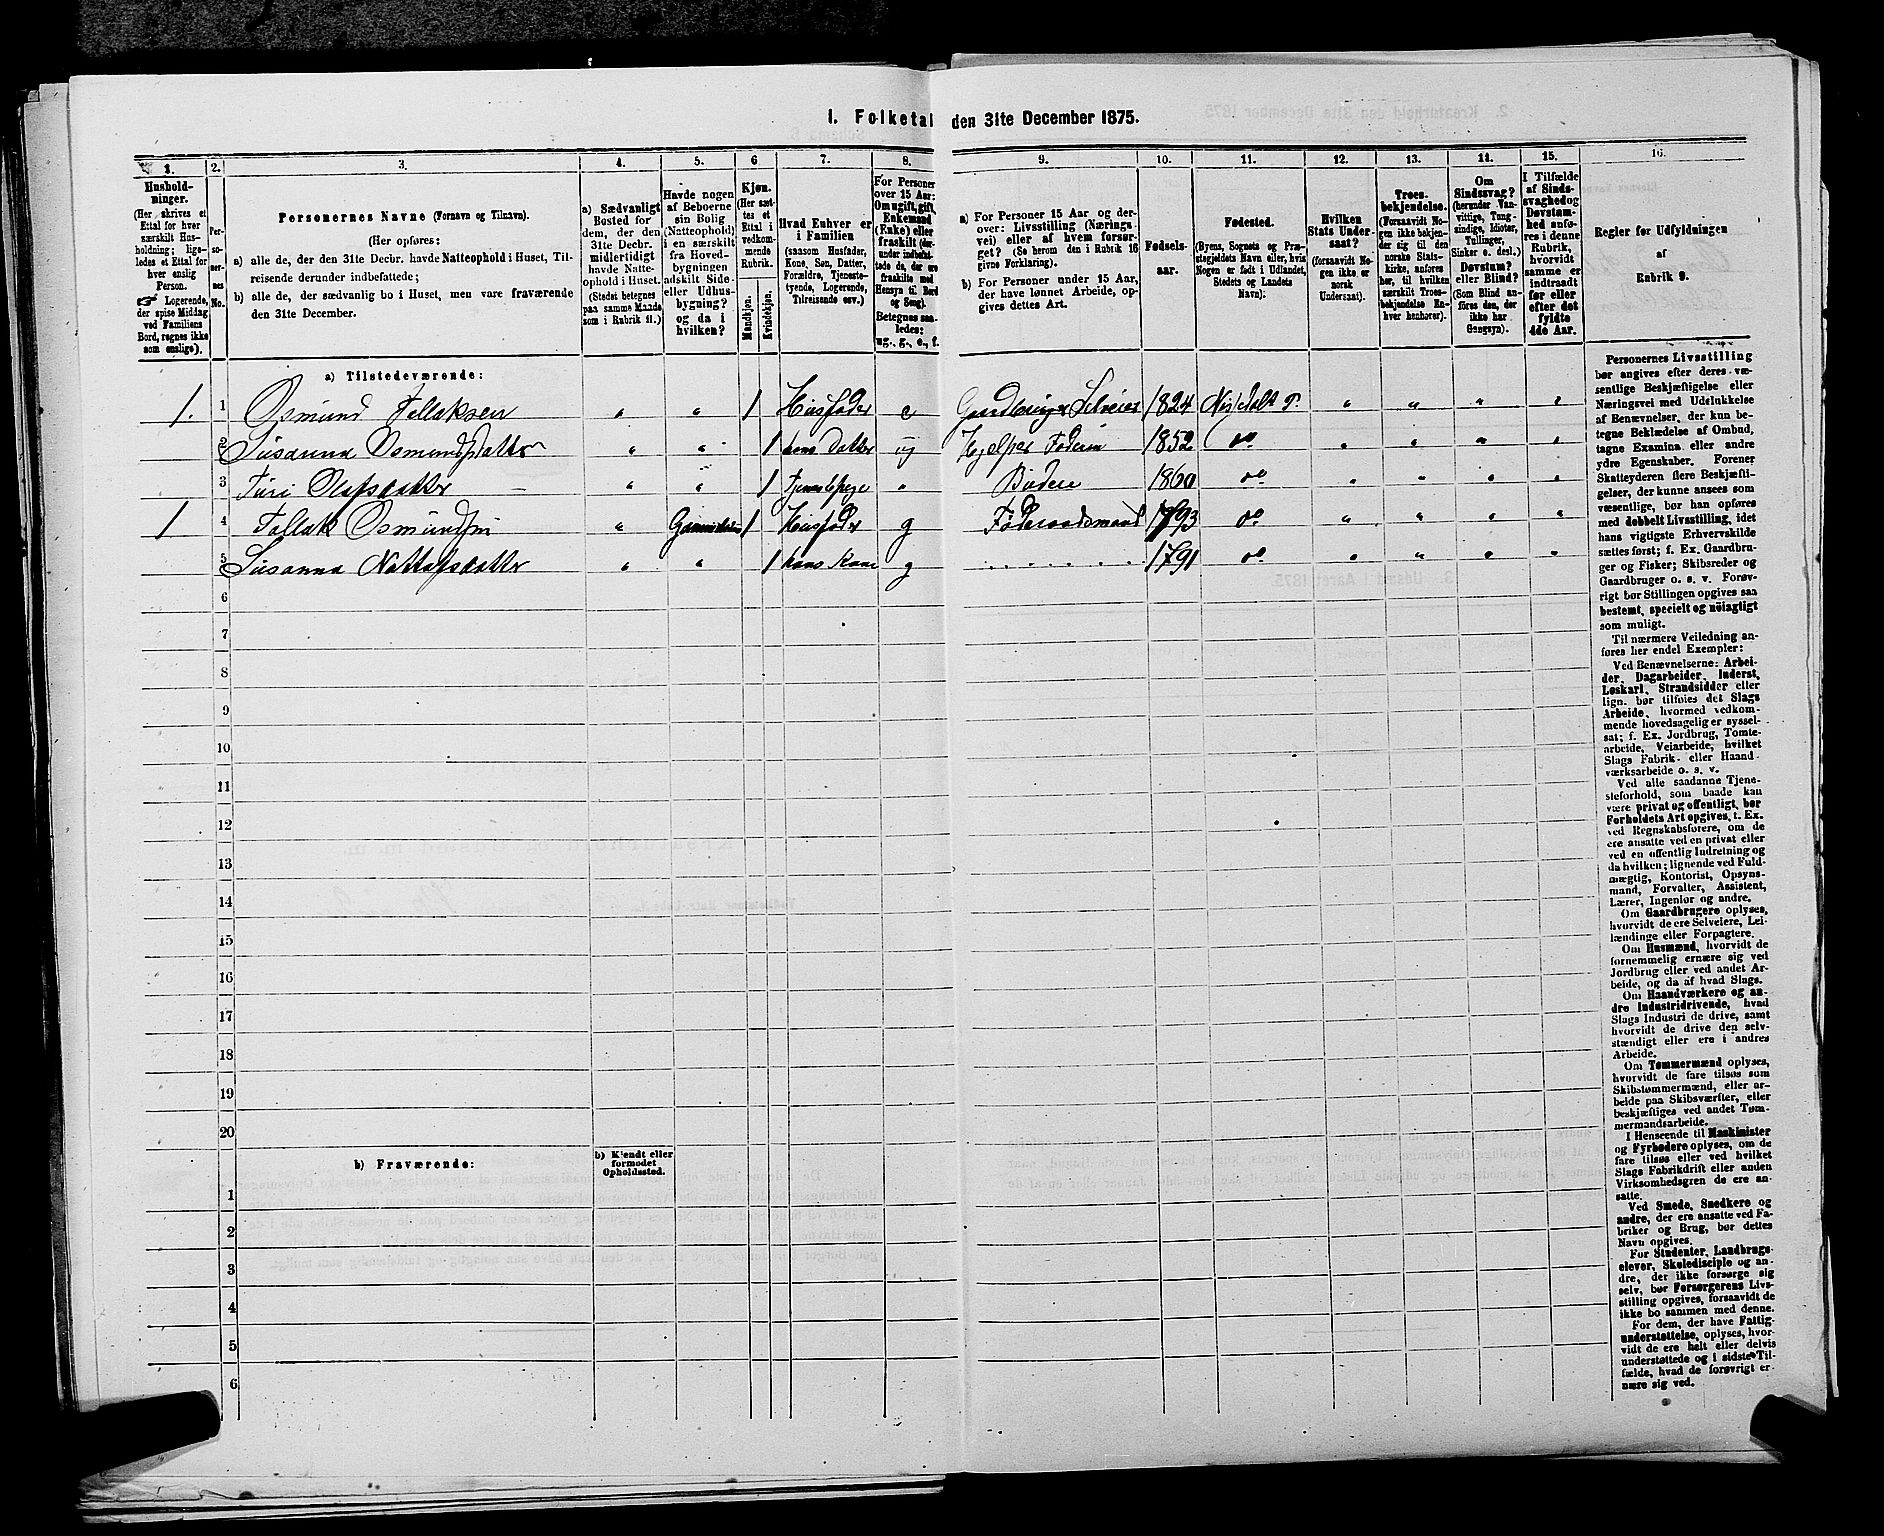 1. Folketal den 31te December 1875.
1. 2. 3. 4. 5. 6 7. 8. 9. 10. 11. 12. 13. 14. 15. 16.
Hushold-
ninger.
(Her skrives et
Ettal for hver
særskilt Hus-
holdning; lige-
ledes et Ettal for
hver enslig
Person.
Logerende,
der spise Middag
ved Familiens
Bord, regnes ikke
som enslige).
Per-
so-
ner-
nes
No.
Personernes Navne (Fornavn og Tilnavn).
(Her opføres:
a) alle de, der den 31te Decbr. havde Natteophold i Huset, Til-
reisende derunder indbefattede;
b) alle de, der sædvanlig bo i Huset, men vare fraværende
den 31te December.
a) Sædvanligt
Bosted for
dem, der den
31te Decbr.
midlertidigt
havde Natte-
ophold i Huset.
(Stedet betegnes
paa samme Maade
som i Rubrik 11.)
Havde nogen
af Beboerne
sin Bolig
(Natteophold)
i en særskilt
fra Hoved-
bygningen
adskilt Side
eller Udhus-
bygning?
og da i
hvilken?
Kjøn.
(Her sæt-
tes et
Ettal i
vedkom-
mende
Rubrik.
Mandkjøn.
Kvindekjøn.
Hvad Enhver er
i Familien
(saasom Husfader,
Kone, Søn, Datter,
Forældre, Tjeneste-
tyende, Logerende,
Tilreisende osv.)
For Personer
over 15 Aar:
Om ugift, gift,
Enkemand
(Enke) eller
fraskilt (der-
under indbefat-
tede de, der ere
fraskilte med
Hensyn til Bord
og Seng).
Betegnes saa-
ledes:
ug., g., e., f.
a) For Personer 15 Aar og der-
over: Livsstilling (Nærings-
vei) eller af hvem forsør-
get? (Se herom den i Rubrik 16
givne Forklaring).
b) For Personer under 15 Aar,
der have lønnet Arbeide, op-
gives dettes Art.
Fødsels-
aar.
Fødested.
(Byens, Sognets og Præ-
stegjeldets Navn eller, hvis
Nogen er født i Udlandet,
Stedets og Landets
Navn).
Hvilken
Stats Under-
saat?
(forsaavidt No-
gen ikke er
norsk
Undersaat).
Troes-
bekjendelse.
(Forsaavidt No-
gen ikke bekjen-
der sig til den
norske Stats-
kirke, anføres
her, til hvilken
særskilt Troes-
bekjendelse En-
hver henhører).
Om
Sindssvag?
(herunder Van-
vittige, Tung-
sindige, Idioter,
Tullinger,
Sinker o. desl.)
Døvstum?
eller Blind?
(Som Blind an-
føres den, der
ikke har
Gangsyn).
I Tilfælde
af Sinds-
svaghed og
Døvstum-
hed anfø-
res i denne
Rubrik,
hvorvidt
samme er
indtraadt
før eller
efter det
fyldte
4de Aar.
Regler for Udfyldningen
af
Rubrik 9.
a) Tilstedeværende:
1. 1 Osmund Tallaksen " " 1 Husfader e Gaardbruger Selveier 1824 Nissedals P. " " " "
2 Susanna Osmundsdatter " " 1 hans datter ug 1852 do " " " "
3 Turi Olafsdatter " " 1 " Budeie 1860 do " " " "
1 4 Tallak Osmundsen " 1 Husfader g Føderaadsmand 1793 do " " " "
5 Susanna " " 1 hans Kone g 1791 do " " " "
6
7
8
9
10
11
12
13
14
15
16
17
18
19
20
b) Fraværende:
b) Kjendt eller
formodet
Opholdssted.
1
2
3
4
5
6
Personernes Livsstilling
bør angives efter deres væ-
sentlige Beskjæftigelse eller
Næringsvei med Udelukkelse
af Benævnelser, der kun be-
tegne Beklædelse af Ombud,
tagne Examina eller andre
ydre Egenskaber. Forener
Skatteyderen flere Beskjæfti-
gelser, der kunne ansees som
væsentlige, bør han opføres
med dobbelt Livsstilling, idet
hans vigtigste Erhvervskilde
sættes først; f. Ex. Gaardbru-
ger og Fisker; Skibsreder og
Gaardbruger o. s. v. Forøv-
rigt bør Stillingen opgives saa
bestemt, specielt og nöiagtigt
som muligt.
Til nærmere Veiledning an-
føres her endel Exempler:
Ved Benævnelserne: Arbei-
der, Dagarbeider, Inderst,
Løskarl, Strandsidder eller
lign. bør tilføies det Slags
Arbeide, hvormed vedkom-
mende hovedsagelig er syssel-
sat; f. Ex. Jordbrug, Tomte-
arbeide, Veiarbeide, hvilket
Slags Fabrik- eller Haand-
værksarbeide o. s. v.
Ved alle saadanne Tjene-
steforhold, som baade kan
være privat og offentligt, bør
Forholdets Art opgives, t. Ex.
ved Regnskabsførere, om de
ere ansatte ved en privat eller
ved en offentlig Indretning og
da hvilken; lignende ved Fuld-
mægtig, Kontorist, Opsyns-
mand, Forvalter, Assistent,
Lærer, Ingeniør og andre.
Om Gaardbrugere oplyses,
hvorvidt de ere Selveiere, Lei-
lændinge eller Forpagtere.
Om Husmænd, hvorvidt de
fornemmelig ernære sig ved
Jordbrug eller ved andet Ar-
beide, og da af hvad Slags.
Om Haandværkere og an-
dre Industridrivende, hvad
Slags Industri de drive, samt
hvorvidt de drive den selv-
stændigt eller ere i andres
Arbeide.
Om Tømmermænd oplyses,
hvorvidt de fare tilsøs som
Skibstømmermænd, eller ar-
beide paa Skibsværfter, eller
beskjæftiges ved andet Tøm-
mermandsarbeide.
I Henseende til Maskinister
og Fyrbødere oplyses, om de
fare tilsøs eller ved hvilket
Slags Fabrikdrift eller anden
Virksomhedsgren de ere an-
satte.
Ved Smede, Snedkere og
andre, der ere ansatte ved Fa-
briker og Brug, bør dettes
Navn opgives.
For Studenter, Landbrugs-
elever, Skoledisciple og an-
dre, der ikke forsørge sig
selv, bør Forsørgerens Livs-
stilling opgives, forsaavidt de
ikke bo sammen med denne.
For dem, der have Fattig-
understøttelse, oplyses, hvor-
vidt de ere helt eller delvis
understøttede og i sidste Til-
fælde, hvad de forøvrigt er-
nære sig ved.